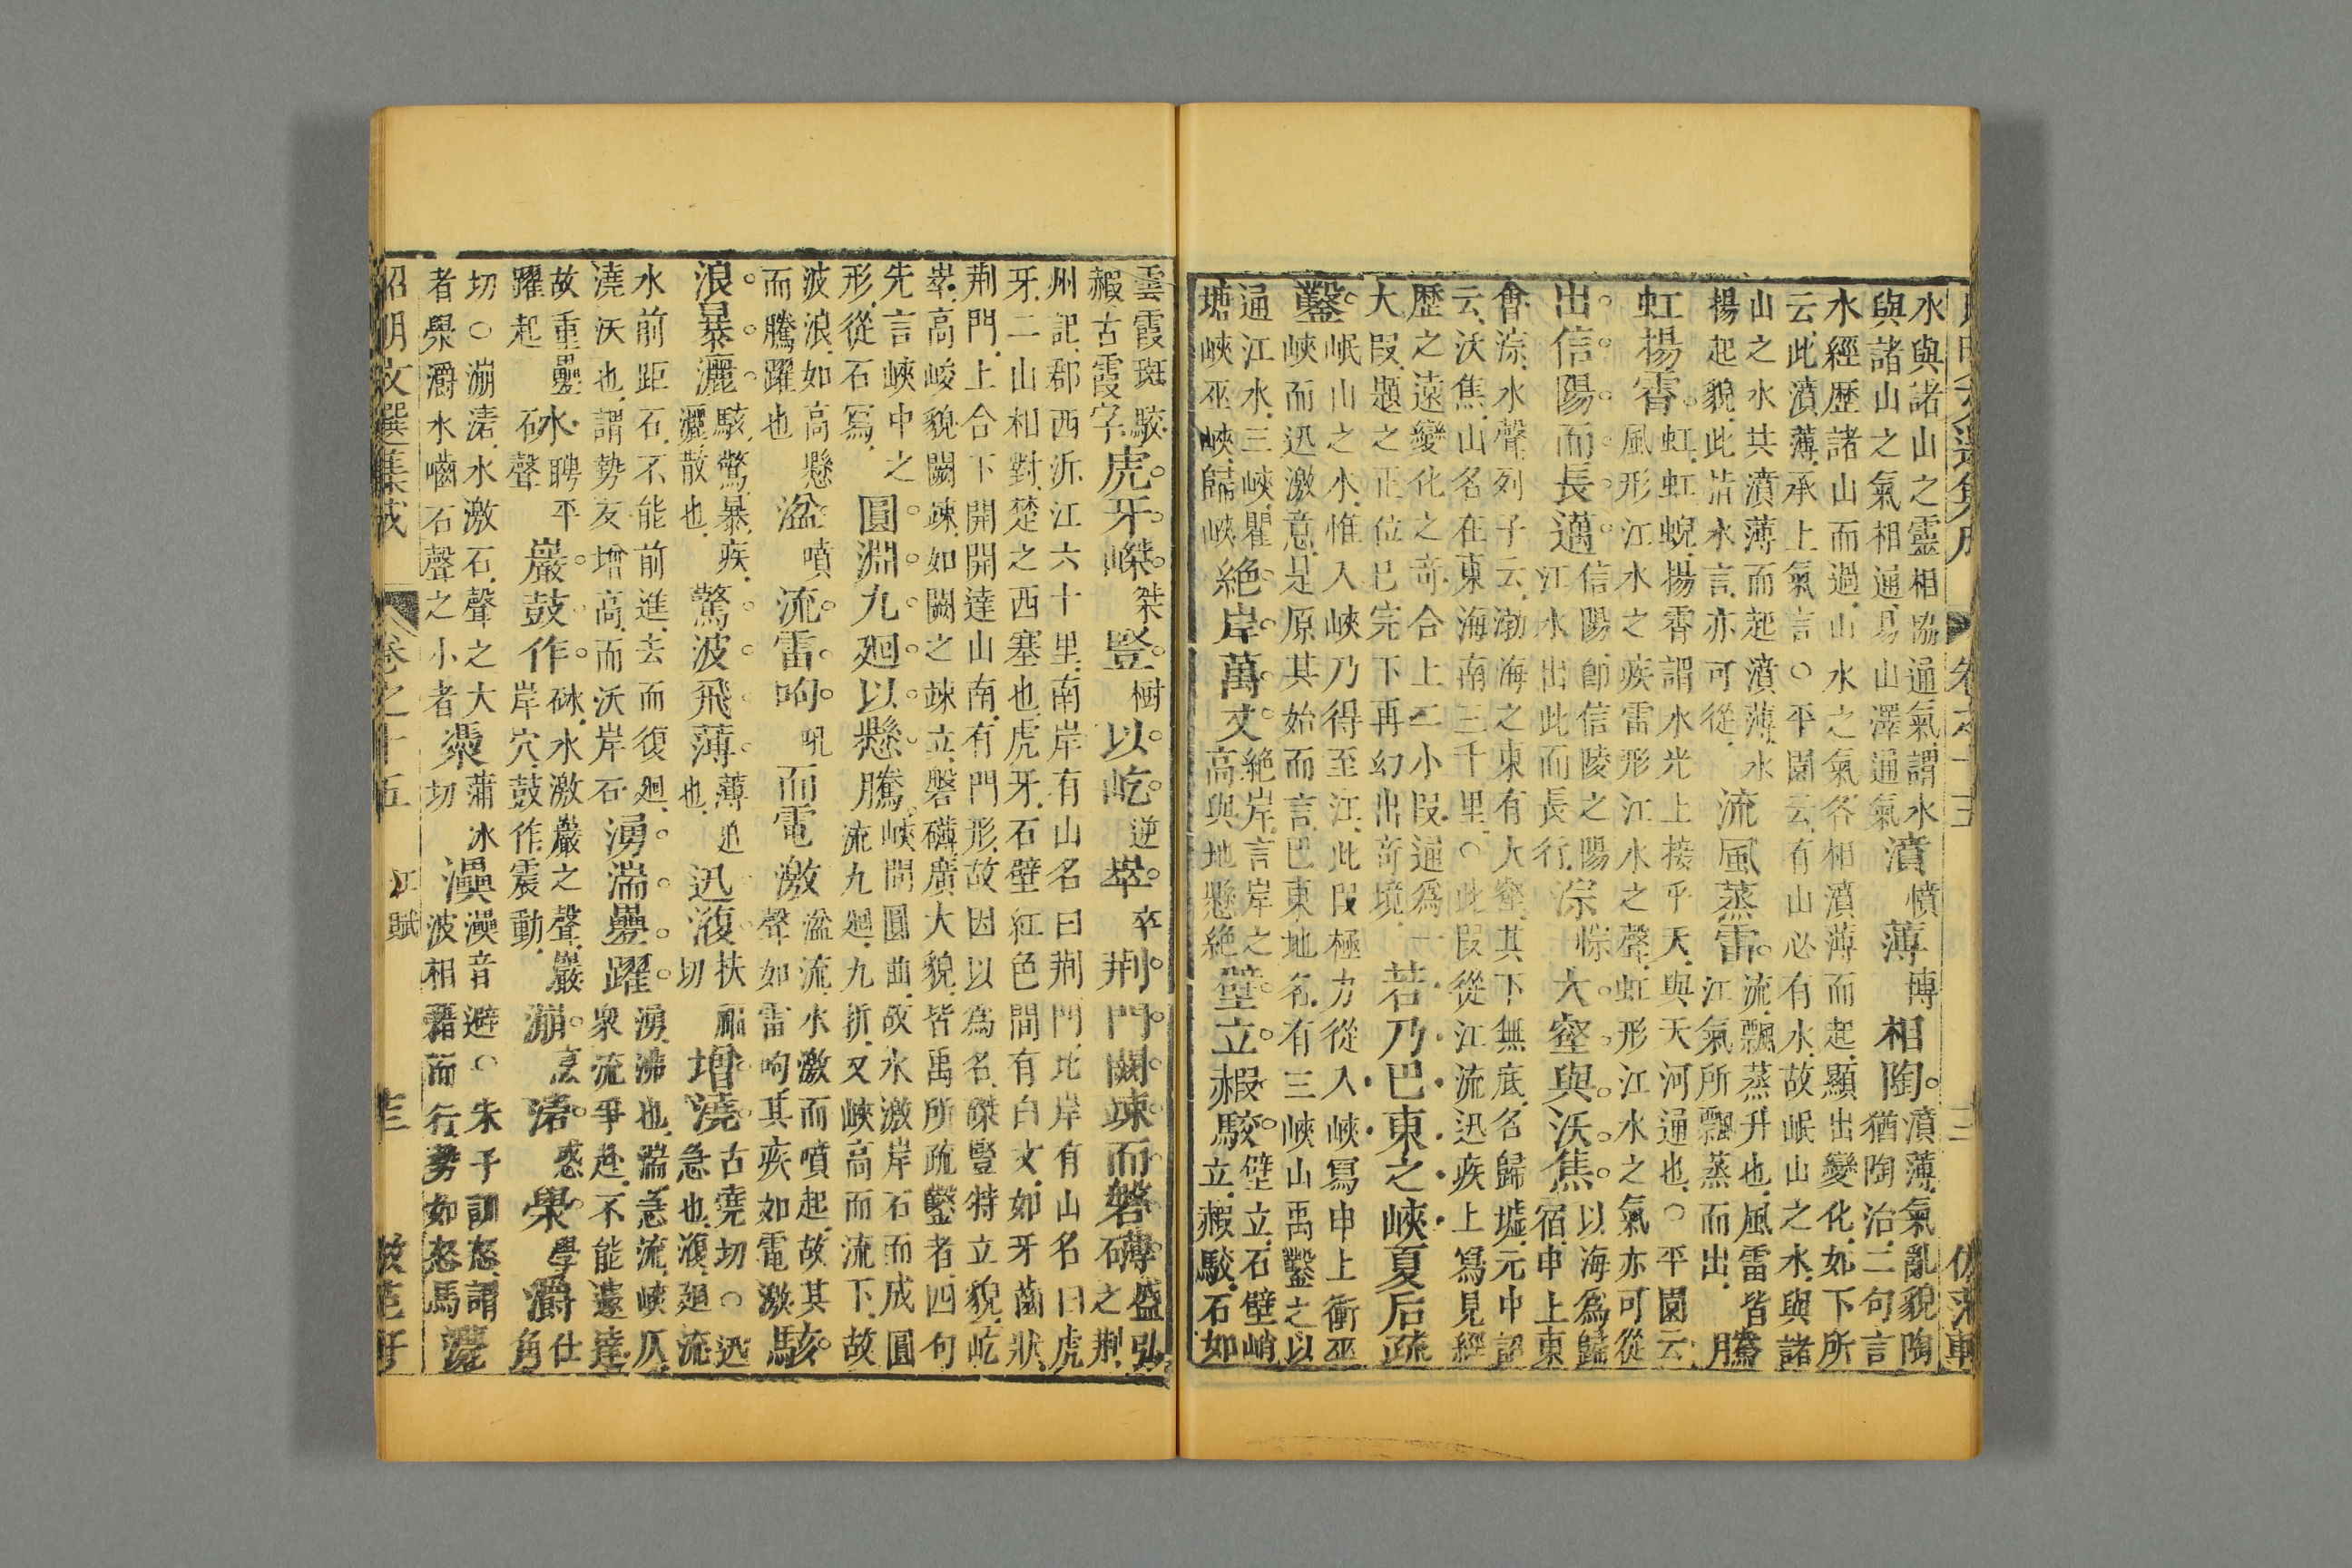 水與諸山之靈相協通氣謂水
與諸山之氣相通易山澤通氣
濆憤薄博相陶
濆薄氣亂貌陶
猶陶冶二句言
水經歷諸山而過山水之氣各相濆薄而起顯出變化如下所
云此濆薄承上氣言○平園云有山必有水故岷山之水與諸
山之水共濆薄而起濆薄水
揚起貌此指水言亦可從
流風蒸雷
流飄蒸升也風雷皆
江氣所飄蒸而出
騰
虹揚霄
虹虹蜺揚霄謂水光上接乎天與天河通也○平園云
風形江水之疾雷形江水之聲虹形江水之氣亦可從
出信陽而長邁
信陽卽信陵之陽
江水出此而長行
淙悰大壑與沃焦
以海爲歸
宿申上東
會淙水聲列子云渤海之東有大壑其下無底名歸墟元中記
云沃焦山名在東海南三千里○此叚從江流迅疾上寫見經
歷之遠變化之奇合上二小叚通爲一
大叚題之正位已完下再幻出奇境
若乃巴東之峽夏后疏
鑿
岷山之水惟入峽乃得至江此叚極力從入峽寫申上衝巫
峽而迅激意是原其始而言巴東地名有三峽山禹鑿之以
通江水三峽瞿
塘峽巫峽歸峽
絶岸萬丈
絶岸言岸之
高與地懸絶
壁立赮駮
壁立石壁峭
立赮駮石如
雲霞斑駮
赮古霞字
虎牙嵥桀豎樹以屹逆崒卒荆門闕竦而磐礴
盛弘
之荆
州記郡西泝江六十里南岸有山名曰荆門北岸有山名曰虎
牙二山相對楚之西塞也虎牙石壁紅色間有白文如牙齒狀
荆門上合下開開達山南有門形故因以爲名嵥豎特立貌屹
崒高峻貌闕竦如闕之竦立磐礴廣大貌皆禹所疏鑿者四句
先言峽中之
形從石寫
圓淵九廻以懸騰
峽間圓曲故水激岸石而成圓
流九廻九折又峽高而流下故
波浪如高懸
而騰躍也
湓噴流雷呴吼而電激
湓流水激而噴起故其
聲如雷呴其疾如電激
駭
浪暴灑
駭驚暴疾
灑散也
驚波飛薄
薄迫
也
迅澓
扶福
切
增澆
古堯切○迅
急也澓廻流
水前距石不能前進去而復廻
澆沃也謂勢友增高而沃岸石
湧湍疊躍
湧沸也湍急流峽仄
衆流爭赴不能遠達
故重疊
躍起
砯
聘平
聲
巖鼓作
砯水激巖之聲巖
岸穴鼓作震動
漰烹湱惑澩學灂
仕
角
切○漰湱水激石聲之大
者澩灂水嚙石聲之小者
蒲冰
切
㶔
澳音避○朱子訓怒謂
波相藉而行勢如怒馬
昭明文選集成 卷之十五 江賦